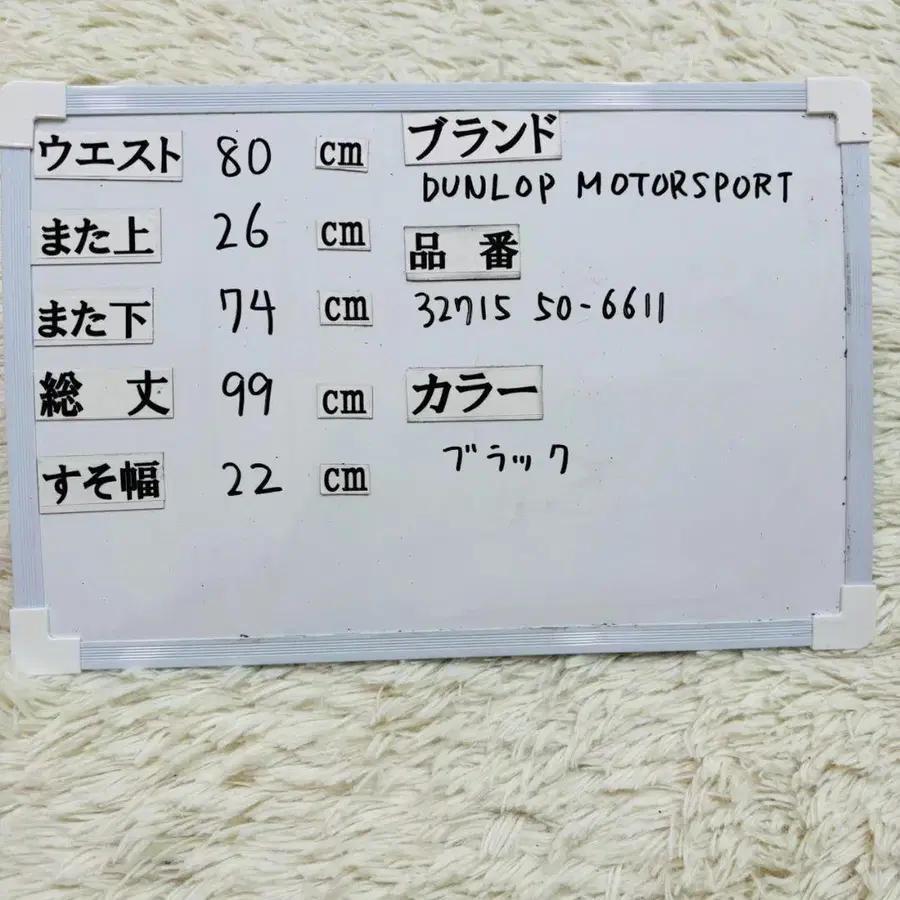 ウエスト 80 cm
また上 26 cm
また下 74 cm
総丈 99 cm
すそ幅 22 cm
ブランド
DUNLOP MOTORSPORT
品番
32715 50-6611
カラー
ブラック